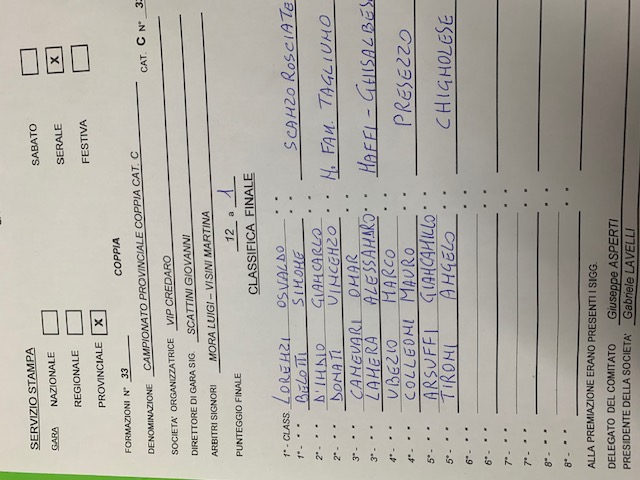 SERVIZIO STAMPA
SABATO
GARA NAZIONALE
SERALE X
REGIONALE
FESTIVA
PROVINCIALE X
FORMAZIONI N° 33 COPPIA CAT. C N°
DENOMINAZIONE CAMPIONATO PROVINCIALE COPPIA CAT. C
SOCIETA' ORGANIZZATRICE VIP CREDARO
DIRETTORE DI GARA SIG. SCATTINI GIOVANNI
ARBITRI SIGNORI MORA LUIGI - VISINI MARTINA
PUNTEGGIO FINALE 12 a 1
CLASSIFICA FINALE
1°- CLASS. LORENZI OSVALDO SCANZOROSCIATE
1°- " " BELOTTI SIMONE " "
2°- " " GIANCARLO M. FAM. TAGLIUNO
2°- " " DONATI VINCENZO " "
3°- " " CANEVARI OMAR MAFFI - GHISALBESE
3°- " " LAMERA ALESSANDRO " "
4°- " " UBEZIO MARCO PRESEZZO
4°- " " COLLEONI MAURO " "
5°- " " ARSUFFI GIANCAMILLO CHIGNOLESE
5°- " " TIRONI ANGELO " "
6°- " " " "
6°- " " " "
7°- " " " "
7°- " " " "
8°- " " " "
8°- " " " "
ALLA PREMIAZIONE ERANO PRESENTI I SIGG.
DELEGATO DEL COMITATO Giuseppe ASPERTI
PRESIDENTE DELLA SOCIETA' Gabriele LAVELLI